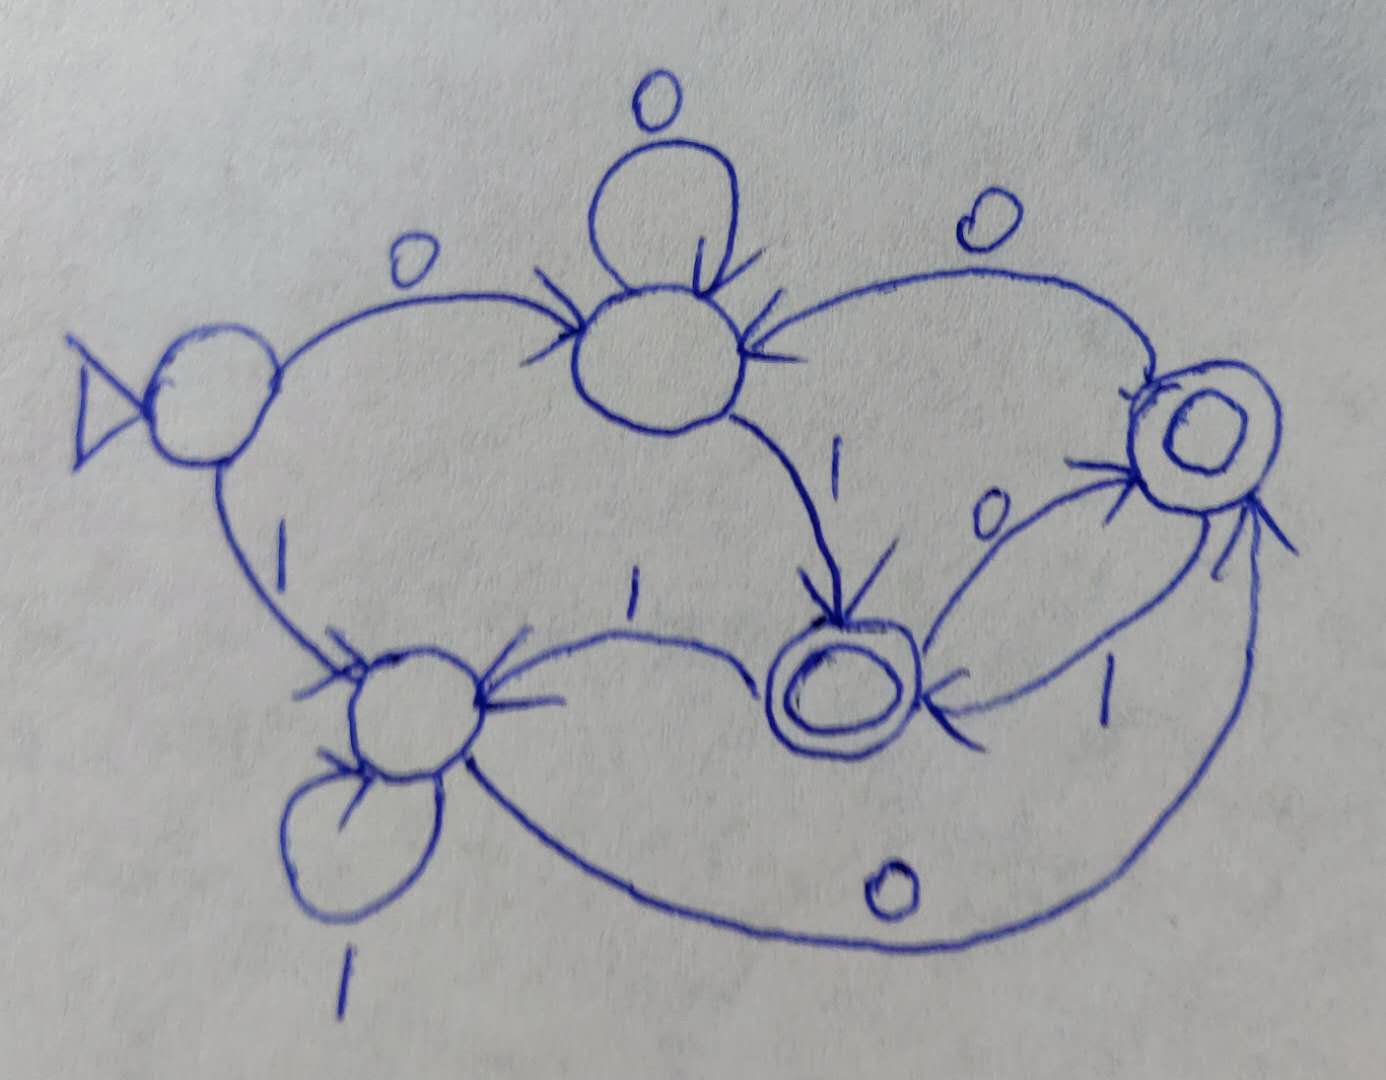 0
0
0
1
0
1
1
1
0
1